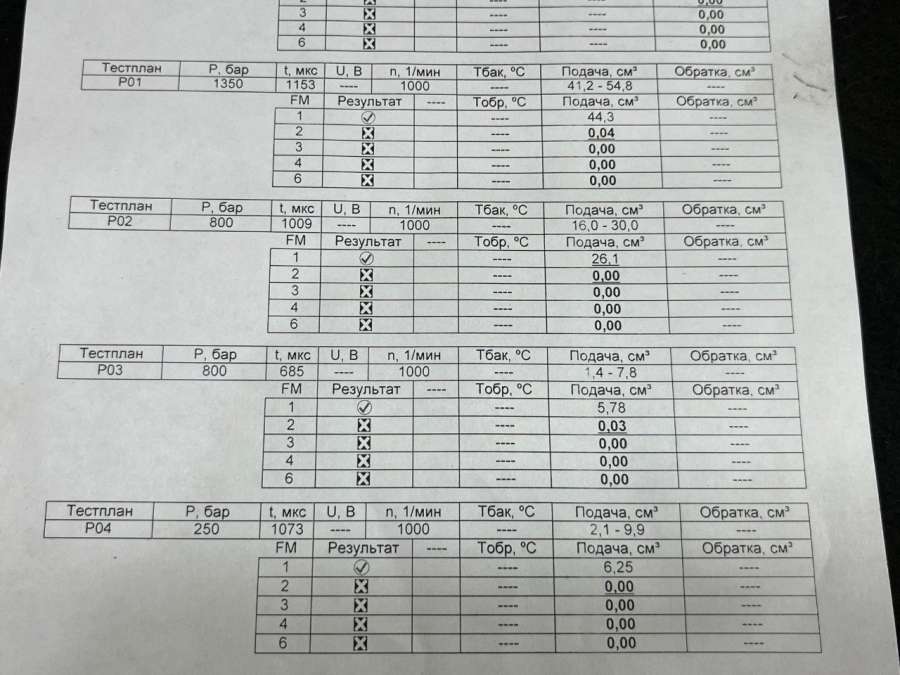 2 ---- ---- 0,00
3 ---- ---- 0,00
4 ---- ---- 0,00
6 ---- ---- 0,00
Тестплан P, бар t, мкс U, В n, 1/мин Тбак, ºC Подача, см³ Обратка, см³
P01 1350 1153 ---- 1000 ---- 41,2 - 54,8 ----
FM Результат ---- Тобр, ºC Подача, см³ Обратка, см³
1 ---- 44,3 ----
2 ---- 0,04 ----
3 ---- 0,00 ----
4 ---- 0,00 ----
6 ---- 0,00 ----
Тестплан P, бар t, мкс U, В n, 1/мин Тбак, ºC Подача, см³ Обратка, см³
P02 800 1009 ---- 1000 ---- 16,0 - 30,0 ----
FM Результат ---- Тобр, ºC Подача, см³ Обратка, см³
1 ---- 26,1 ----
2 ---- 0,00 ----
3 ---- 0,00 ----
4 ---- 0,00 ----
6 ---- 0,00 ----
Тестплан P, бар t, мкс U, В n, 1/мин Тбак, ºC Подача, см³ Обратка, см³
P03 800 685 ---- 1000 ---- 1,4 - 7,8 ----
FM Результат ---- Тобр, ºC Подача, см³ Обратка, см³
1 ---- 5,78 ----
2 ---- 0,03 ----
3 ---- 0,00 ----
4 ---- 0,00 ----
6 ---- 0,00 ----
Тестплан P, бар t, мкс U, В n, 1/мин Тбак, ºC Подача, см³ Обратка, см³
P04 250 1073 ---- 1000 ---- 2,1 - 9,9 ----
FM Результат ---- Тобр, ºC Подача, см³ Обратка, см³
1 ---- 6,25 ----
2 ---- 0,00 ----
3 ---- 0,00 ----
4 ---- 0,00 ----
6 ---- 0,00 ----